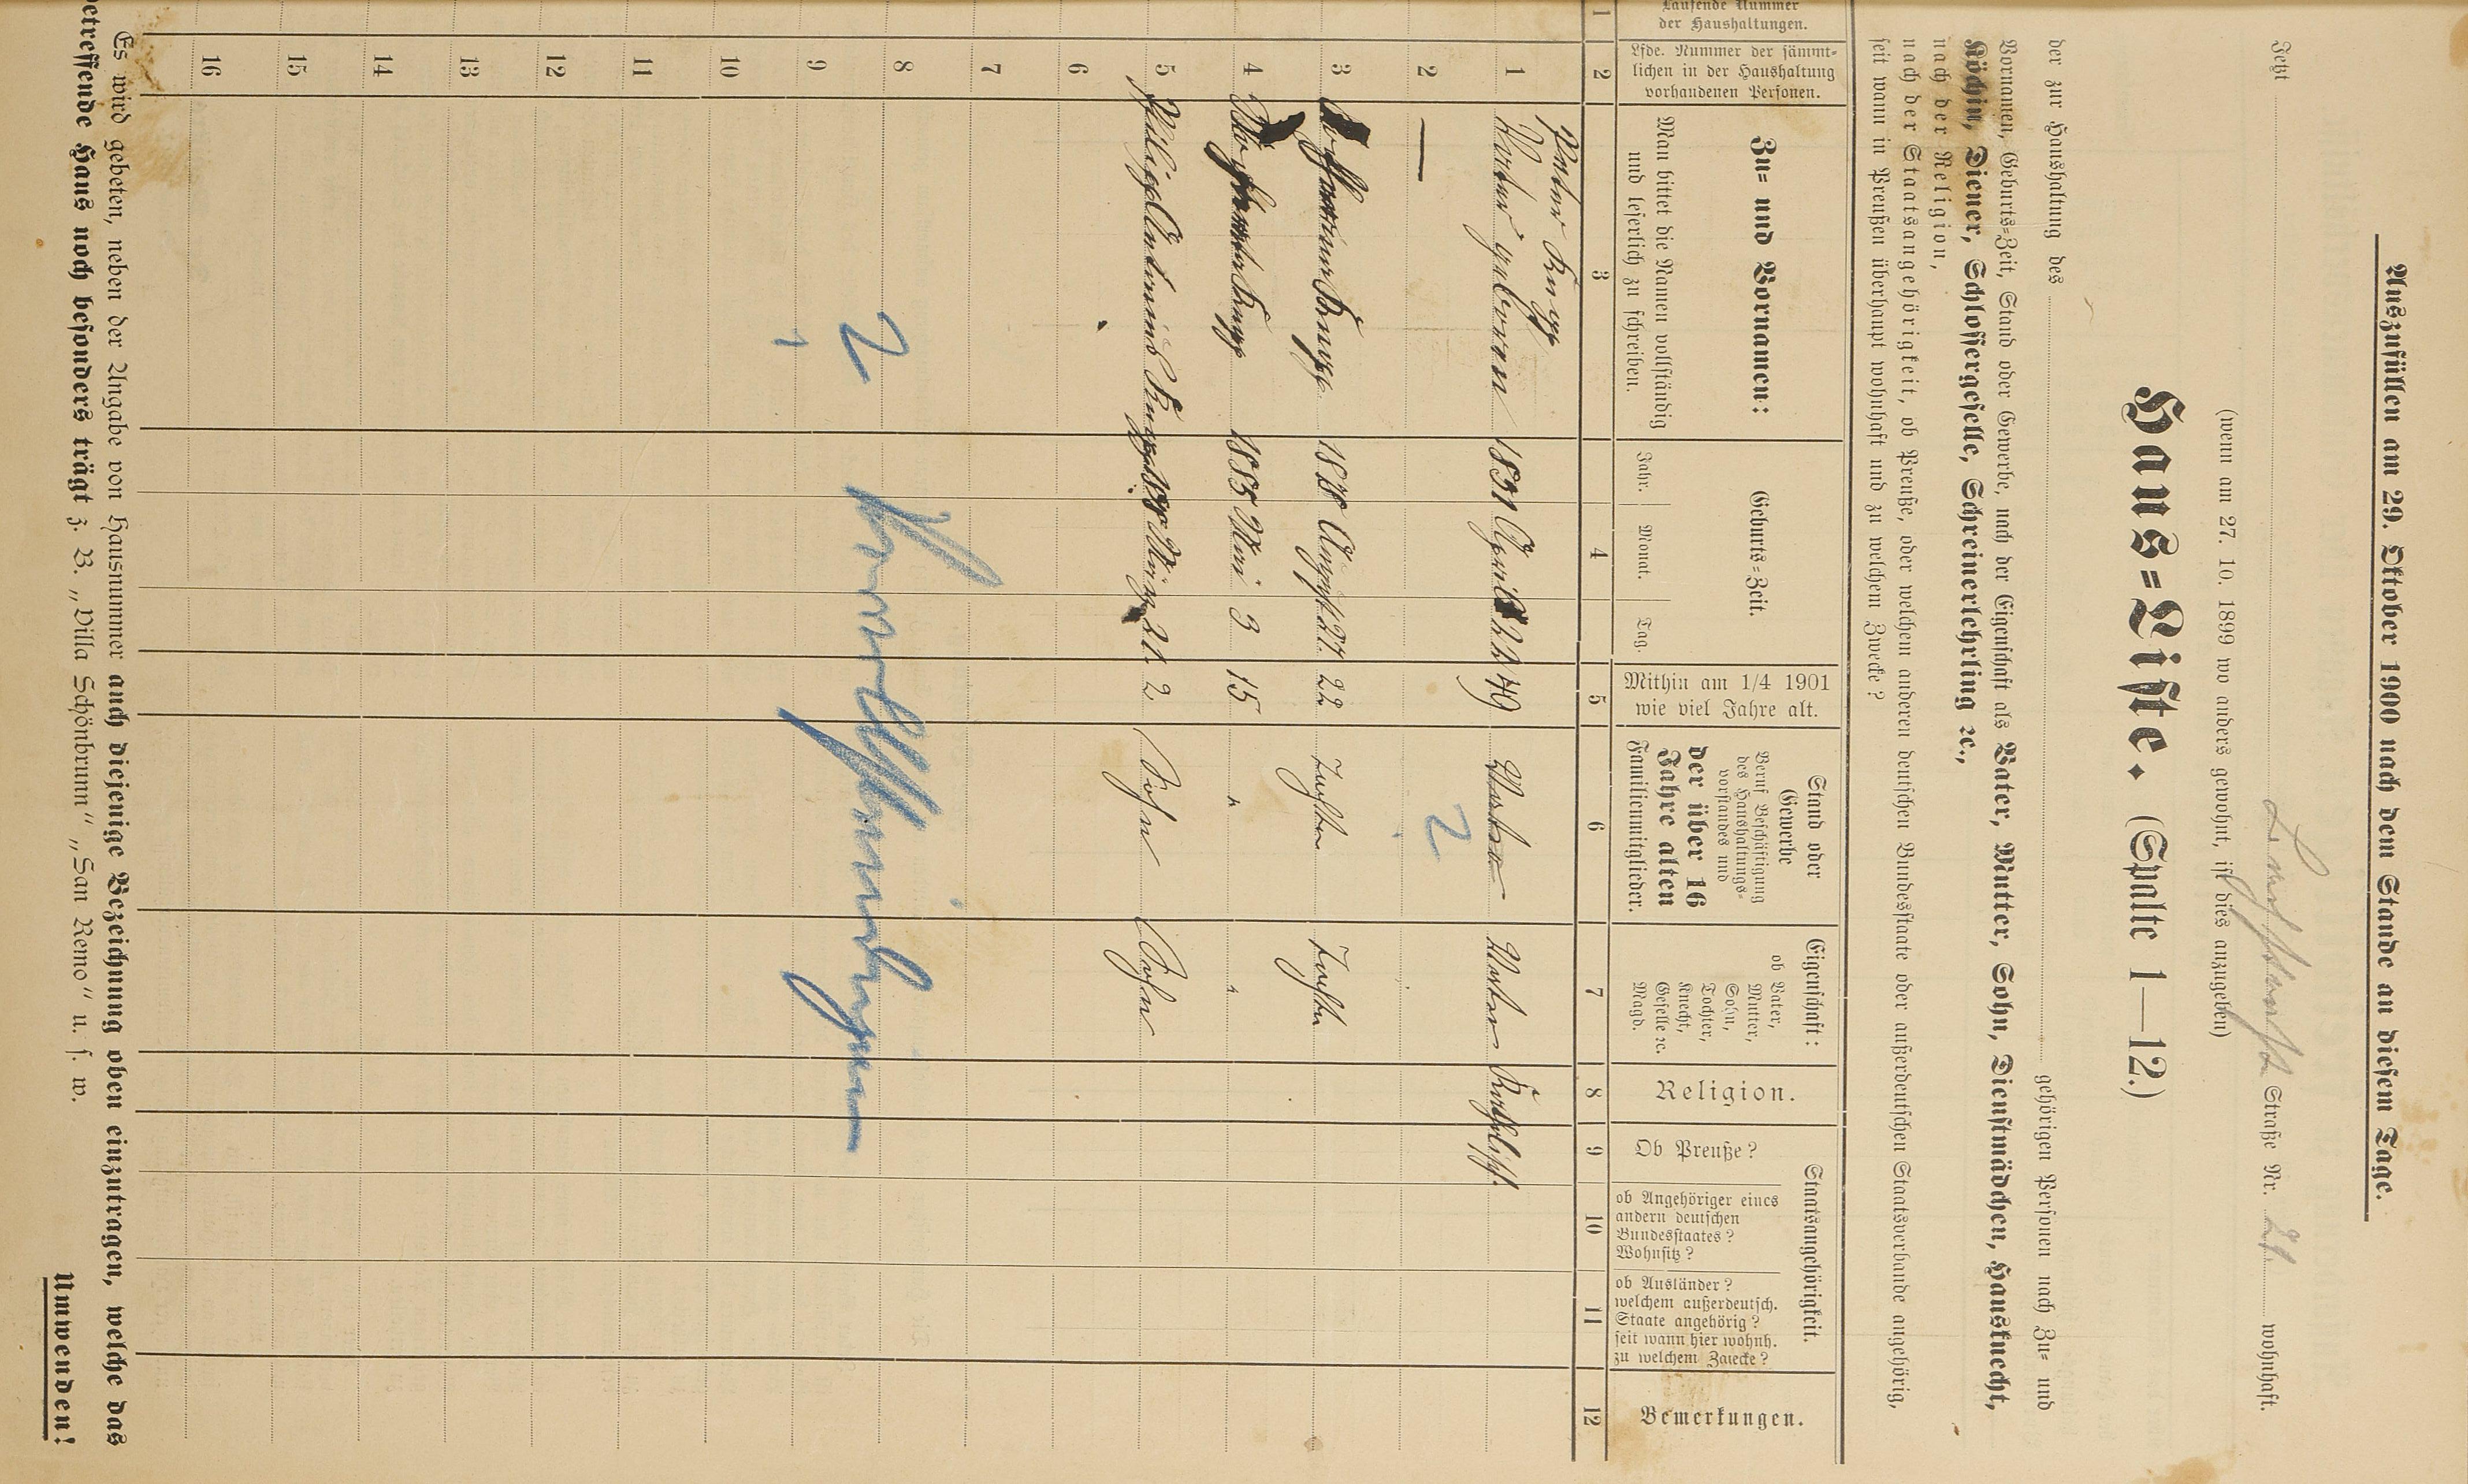 Auszufüllen am 29. Oktober 1900 nach dem Stande an diesem Tage.
Jetzt Straße Nr. 21. wohnhaft.
(wenn am 27. 10. 1899 wo anders gewohnt, ist dies anzugeben)
Haus=Liste. (Spalte 1—12.)
der zur Haushaltung des gehörigen Personen nach Zu= und
Vornamen, Geburts=Zeit, Stand oder Gewerbe, nach der Eigenschaft als Vater, Mutter, Sohn, Dienstmädchen, Hausknecht,
Köchin, Diener, Schlossergeselle, Schreinerlehrling ꝛc.,
nach der Religion,
nach der Staatsangehörigkeit, ob Preuße, oder welchem anderen deutschen Bundesstaate oder außerdeutschen Staatsverbande angehörig,
seit wann in Preußen überhaupt wohnhaft und zu welchem Zwecke?
Laufende Nummer
der Haushaltungen.
Lfde. Nummer der sämmt=
lichen in der Haushaltung
vorhandenen Personen.
Zu= und Vornamen:
Man bittet die Namen vollständig
und leserlich zu schreiben.
Geburts=Zeit.
Jahr. Monat. Tag.
Mithin am 1/4 1901
wie viel Jahre alt.
Stand oder
Gewerbe
Beruf Beschäftigung
des Haushaltungs=
vorstandes und
der über 16
Jahre alten
Familienmitglieder.
Eigenschaft:
ob Vater,
Mutter,
Sohn,
Tochter,
Knecht,
Geselle ꝛc.
Magd.
Religion.
Staatsangehörigkeit.
Ob Preuße?
ob Angehöriger eines
andern deutschen
Bundesstaates?
Wohnsitz?
ob Ausländer?
welchem außerdeutsch.
Staate angehörig?
seit wann hier wohnh.
zu welchem Zwecke?
Bemerkungen.
1 2 3 4 5 6 7 8 9 10 11 12
Peter Krupp
1 geboren 1851 April 22 49 Vater Katholisch.
2 — 2
3 Krupp. 1878 August 27. 22 Tochter Tochter
4 Krupp 1885 Mai 3 15 " "
5 Krupp März 21. 2 Sohn Sohn
6
7
8
2
9
10
11
12
13
14
15
16
Es wird gebeten, neben der Angabe von Hausnummer auch diejenige Bezeichnung oben einzutragen, welche das
betreffende Haus noch besonders trägt z. B. „Villa Schönbrunn" „San Remo" u. s. w.
Umwenden!